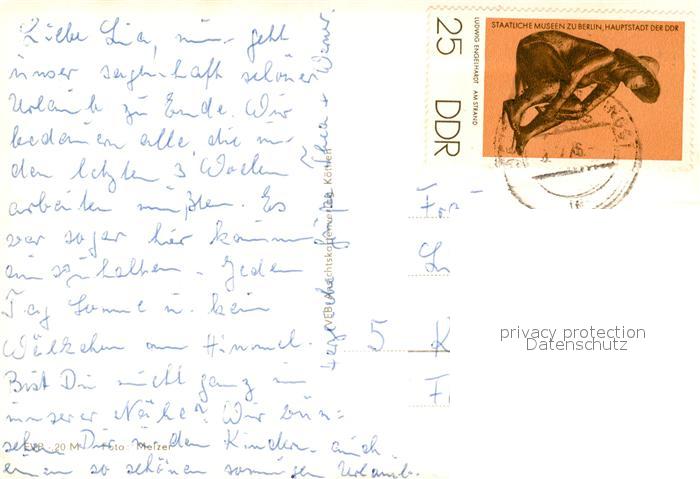 Liebe Lia, nun geht
unser sagenhaft schöner
Urlaub zu Ende. Wir
bedauern alle, die in
den letzten 3 Wochen
arbeiten mußten. Es
war sogar hier kaum
auszuhalten. Jeden
Tag Sonne u. kein
Wölkchen am Himmel.
Bist Du nicht ganz in
unserer Nähe? Wir wün=
schen Dir u. den Kindern auch
einen so schönen sonnigen Urlaub.
EVP -.20 M Foto: Melzer
VEB Ansichtskartenverlag Köthen
STAATLICHE MUSEEN ZU BERLIN, HAUPTSTADT DER DDR
LUDWIG ENGELHARDT AM STRAND
25 DDR
5 K
privacy protection
Datenschutz